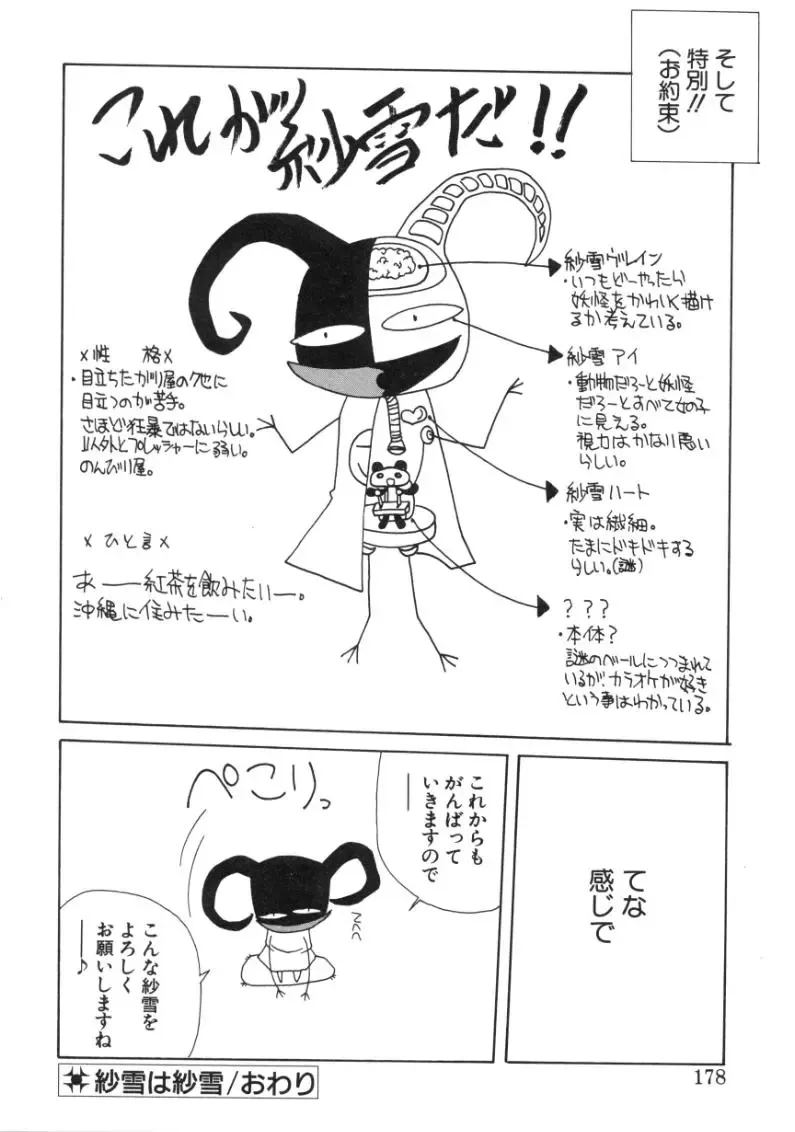 そして
特別!!
(お約束)
これが紗雪だ!!
紗雪ヴレイン
・いつもどーやったら
妖怪をかわいく描け
るか考えている。
紗雪アイ
・動物だろーと妖怪
だろーとすべて女の子
に見える。
視力はかなり悪い
らしい。
紗雪ハート
・実は繊細。
たまにドキドキする
らしい。(謎)
???
・本体?
謎のベールにつつまれて
いるが、カラオケが好き
という事はわかっている。
×性 格×
・目立ちたがり屋のクセに
目立つのが苦手。
さほど狂暴ではないらしい。
以外とプレッシャーに弱い。
のんびり屋。
×ひと言×
あーー紅茶を飲みたいー。
沖縄に住みたーーい。
てな
感じで
これからも
がんばって
いきますので
――
ぺこりっ
こんな紗雪を
よろしく
お願いしますね
――♪
紗雪は紗雪/おわり
178